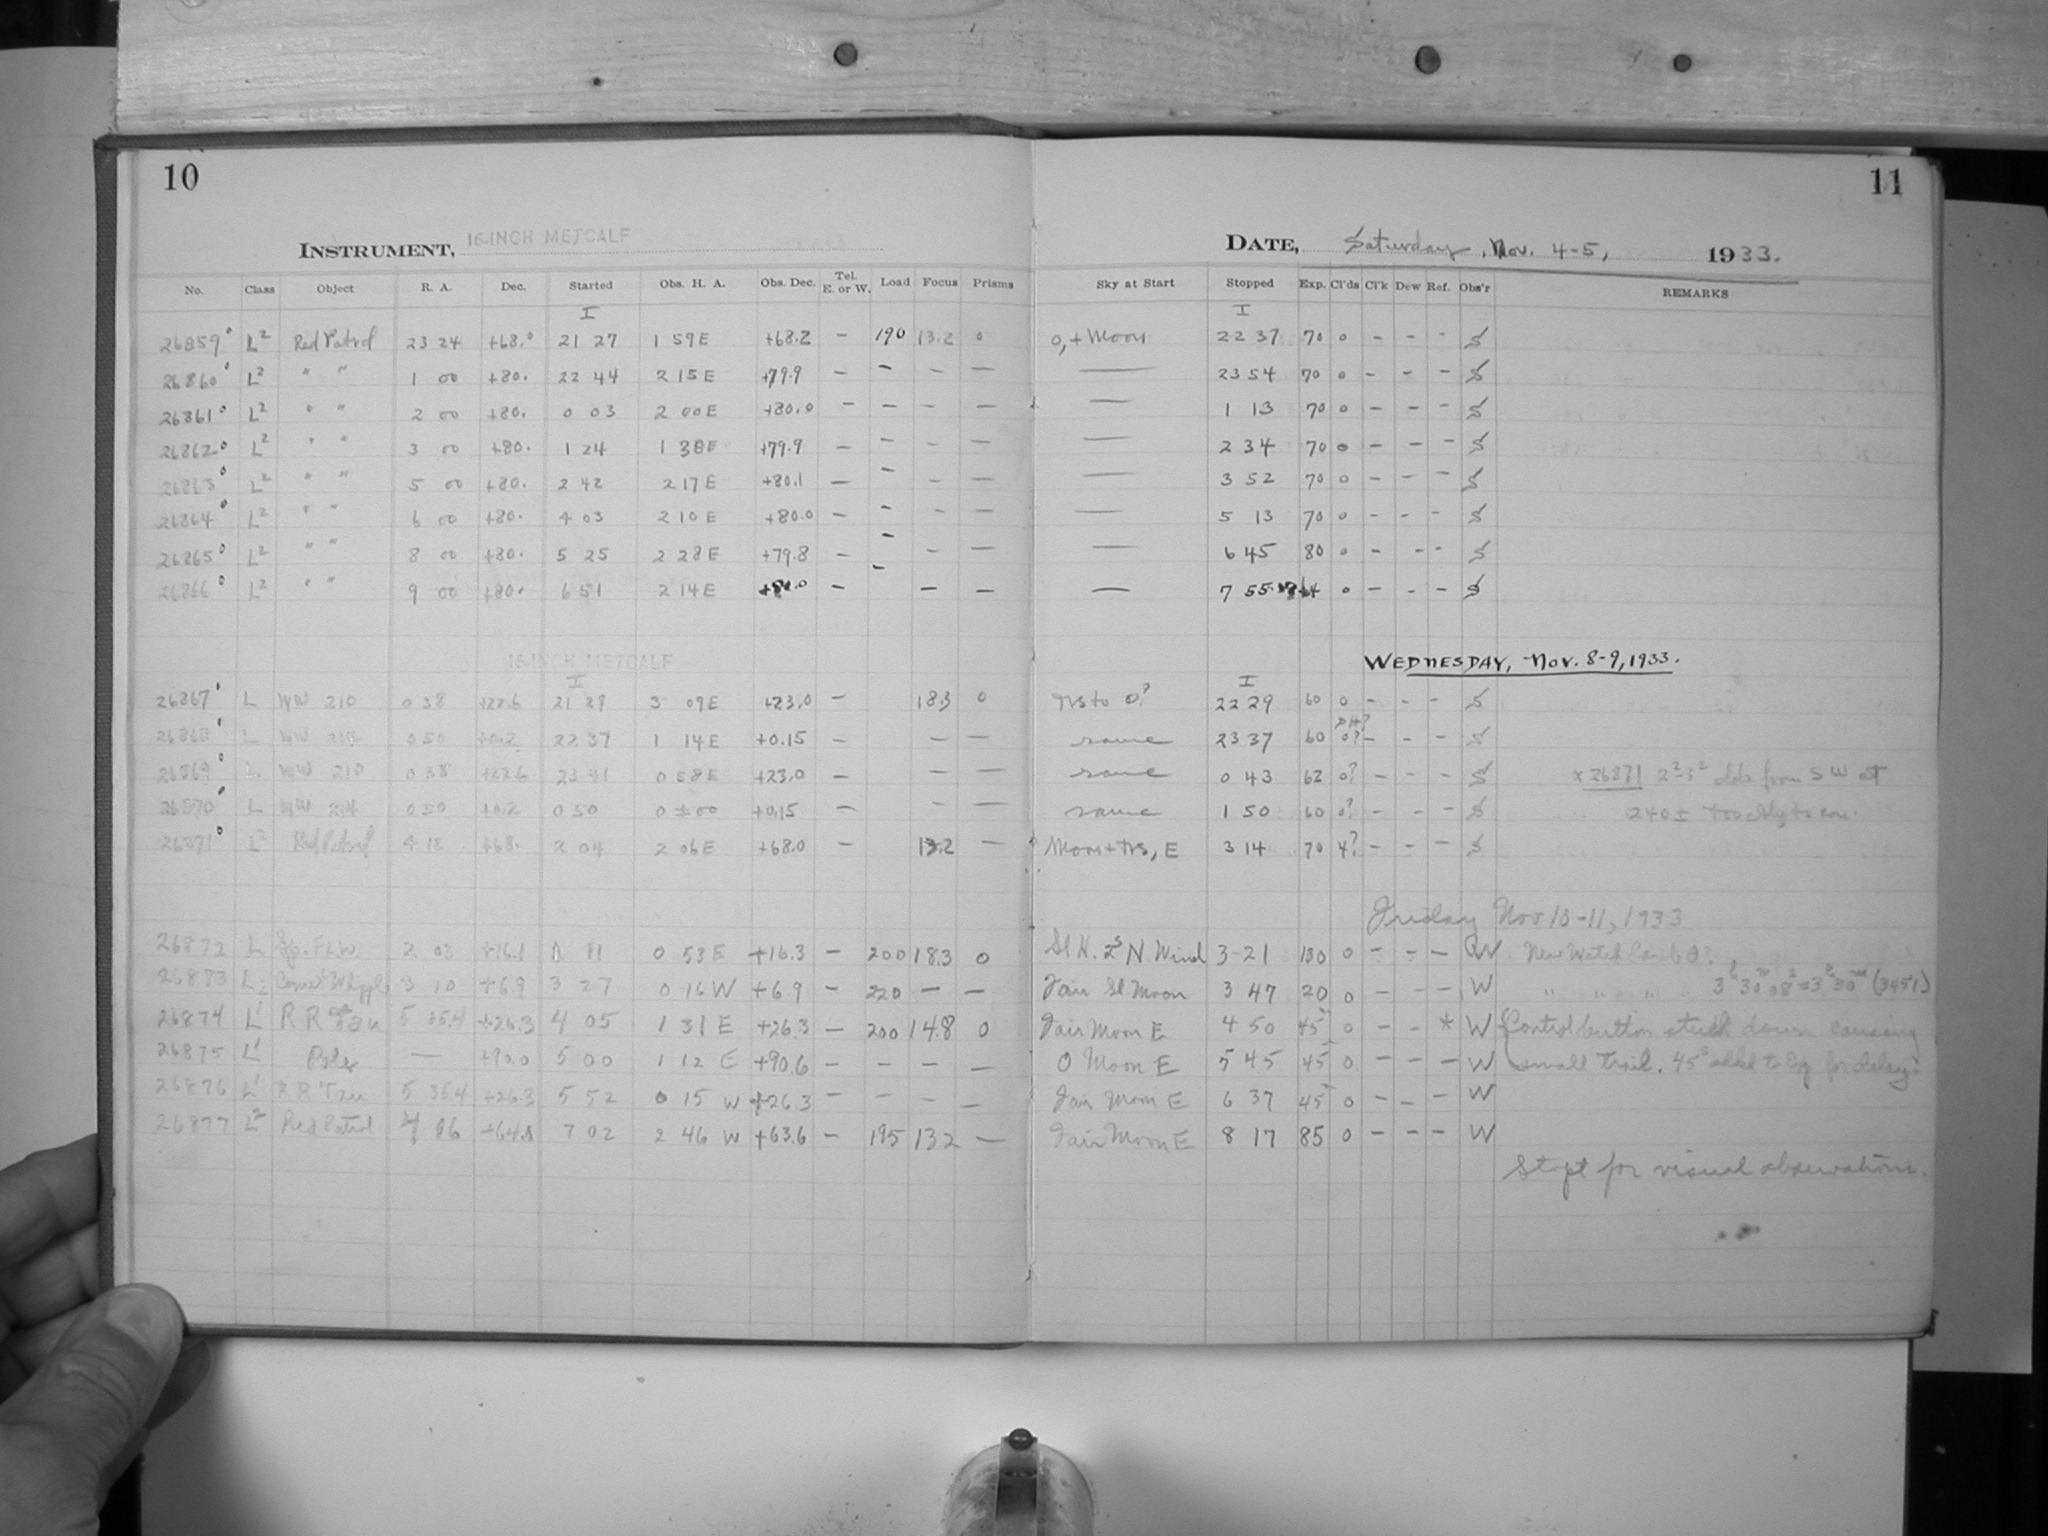 10
11
INSTRUMENT, 16-INCH METCALF
DATE, Saturday, Nov. 4-5, 1933.
No. Class Object R. A. Dec. Started Obs. H. A. Obs. Dec. Tel. E. or W. Load Focus Prisms Sky at Start Stopped Exp. Cl'ds Cl'k Dew Ref. Obs'r REMARKS
I I
26859 L2 Red Patrol 23 24 +68.0 21 27 1 59 E +68.2 – 190 13.2 0 0, + Moon 22 37 70 0 – – – S
26860 L2 " " 1 00 +80. 22 44 2 15 E +79.9 – – – — — 23 54 70 0 – – – S
26861 L2 " " 2 00 +80. 0 03 2 00 E +80.0 – – – — — 1 13 70 0 – – – S
26862 L2 " " 3 00 +80. 1 24 1 38 E +79.9 – – – — — 2 34 70 0 – – – S
26863 L2 " " 5 00 +80. 2 42 2 17 E +80.1 – – – — — 3 52 70 0 – – – S
26864 L2 " " 6 00 +80. 4 03 2 10 E +80.0 – – – — — 5 13 70 0 – – – S
26865 L2 " " 8 00 +80. 5 25 2 28 E +79.8 – – – — — 6 45 80 0 – – – S
26866 L2 " " 9 00 +80. 6 51 2 14 E – – – — — 7 55 64 0 – – – S
16-INCH METCALF
WEDNESDAY, Nov. 8-9, 1933.
I I
26867 L MW 210 0 38 +22.6 21 29 3 09 E +23.0 – 18.3 0 to 0? 22 29 60 0 – – – S
26868 L MW 0 50 +0.2 22 37 1 14 E +0.15 – – — same 23 37 60 0? – – – S
26869 L MW 210 0 38 +22.6 23 41 0 58 E +23.0 – – — same 0 43 62 0? – – – S x 26871 from SW at
26870 L MW 0 50 +0.2 0 50 0 ±00 +0.15 – – — same 1 50 60 0? – – – S 240± Too cldy to con.
26871 L2 Red Patrol 4 18 +68. 2 04 2 06 E +68.0 – 13.2 — Moon + , E 3 14 70 4? – – – S
Friday Nov 10-11, 1933
26872 L 2 03 +16.1 1 11 0 53 E +16.3 – 200 18.3 0 Sl H. N Wind 3-21 130 0 – – – W New Watch
26873 L Comet Whipple 3 10 +6.9 3 27 0 16 W +6.9 – 220 – – Fair Sl Moon 3 47 20 0 – – – W " " " (3451)
26874 L1 R R Tau 5 35.4 +26.3 4 05 1 31 E +26.3 – 200 14.8 0 Fair Moon E 4 50 45 0 – – * W Control button stuck down causing
26875 L1 Pole — +90.0 5 00 1 12 E +90.6 – – – – 0 Moon E 5 45 45 0 – – – W small trail. 45s added to Exp for delay.
26876 L1 R R Tau 5 35.4 +26.3 5 52 0 15 W +26.3 – – – – Fair Moon E 6 37 45 0 – – – W
26877 L2 Red Patrol 4 06 7 02 2 46 W +63.6 – 195 13.2 – Fair Moon E 8 17 85 0 – – – W
Stopt for visual observations.